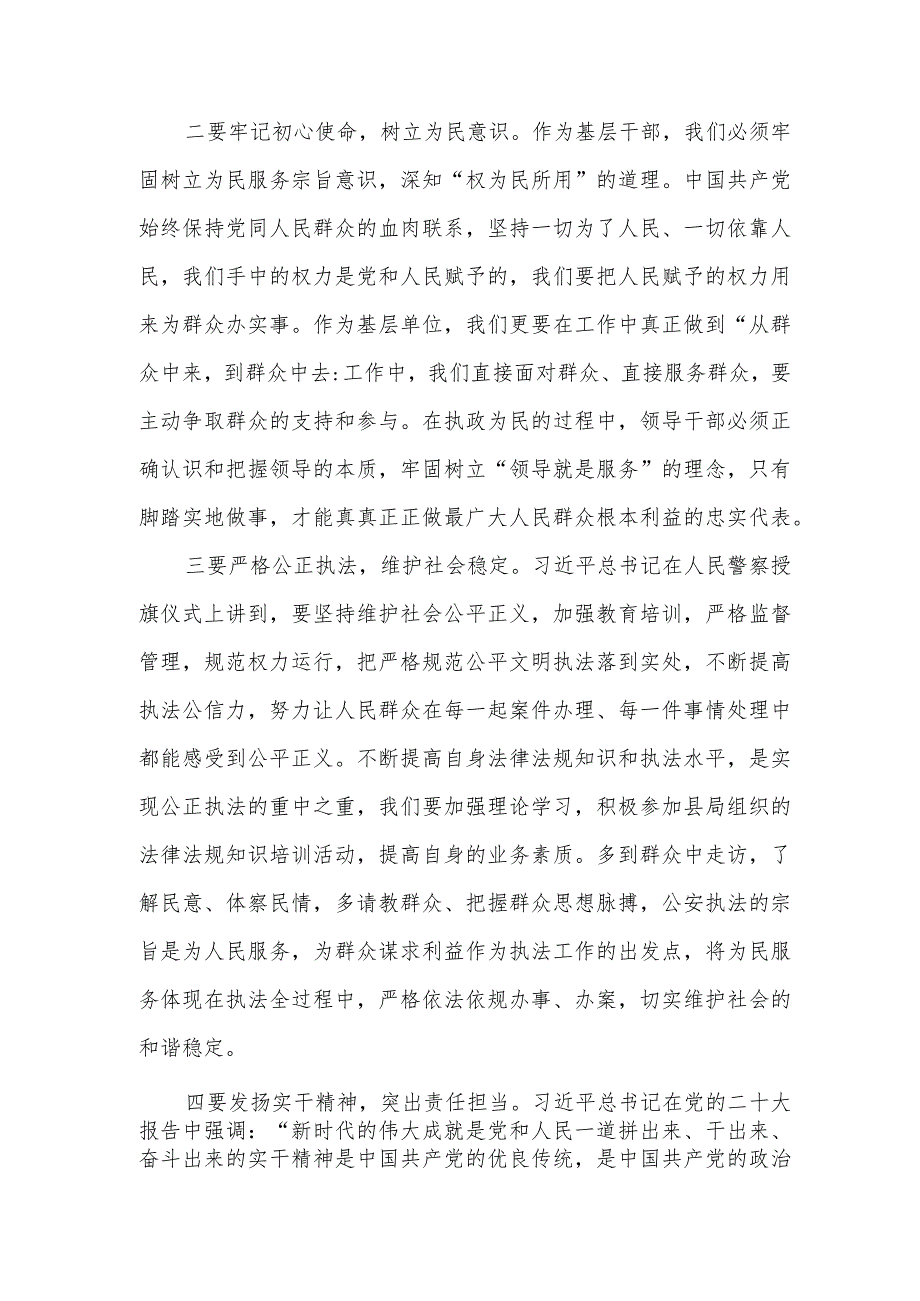 二要牢记初心使命，树立为民意识。作为基层干部，我们必须牢
固树立为民服务宗旨意识，深知“权为民所用”的道理。中国共产党
始终保持党同人民群众的血肉联系，坚持一切为了人民、一切依靠人
民，我们手中的权力是党和人民赋予的，我们要把人民赋予的权力用
来为群众办实事。作为基层单位，我们更要在工作中真正做到“从群
众中来，到群众中去:工作中，我们直接面对群众、直接服务群众，要
主动争取群众的支持和参与。在执政为民的过程中，领导干部必须正
确认识和把握领导的本质，牢固树立“领导就是服务”的理念，只有
脚踏实地做事，才能真真正正做最广大人民群众根本利益的忠实代表。
三要严格公正执法，维护社会稳定。习近平总书记在人民警察授
旗仪式上讲到，要坚持维护社会公平正义，加强教育培训，严格监督
管理，规范权力运行，把严格规范公平文明执法落到实处，不断提高
执法公信力，努力让人民群众在每一起案件办理、每一件事情处理中
都能感受到公平正义。不断提高自身法律法规知识和执法水平，是实
现公正执法的重中之重，我们要加强理论学习，积极参加县局组织的
法律法规知识培训活动，提高自身的业务素质。多到群众中走访，了
解民意、体察民情，多请教群众、把握群众思想脉搏，公安执法的宗
旨是为人民服务，为群众谋求利益作为执法工作的出发点，将为民服
务体现在执法全过程中，严格依法依规办事、办案，切实维护社会的
和谐稳定。
四要发扬实干精神，突出责任担当。习近平总书记在党的二十大
报告中强调：“新时代的伟大成就是党和人民一道拼出来、干出来、
奋斗出来的实干精神是中国共产党的优良传统，是中国共产党的政治